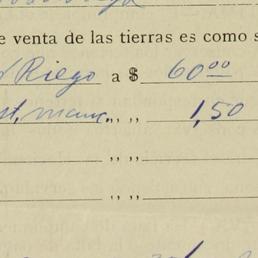 e venta de las tierras es como s
Riego a $ 60⁰⁰
st, manc. ,, ,, 1,50
,, ,,
,, ,,